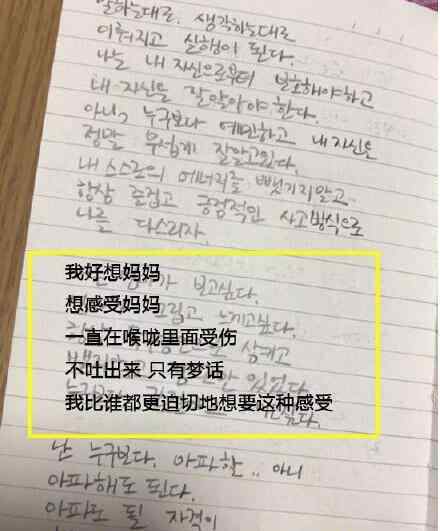 말하는대로. 생각하는대로
이뤄지고 실행이 된다.
나는 내 자신으로부터 보호해야하고
내 자신을 잘 알아야 한다.
아니, 누구보다 예민하고 내 자신은
정말 무섭게 잘알고있다.
내 스스로의 에너지를 뺏기지말고
항상 즐겁고 긍정적인 사고방식으로
나를 다스리자.
가 보고싶다.
我好想妈妈
그립고 느끼고싶다.
想感受妈妈
삼키고
一直在喉咙里面受伤
있있다
不吐出来 只有梦话
我比谁都更迫切地想要这种感受
난 누구보다. 아파한.. 아니
아파해도 된다.
아파도 될 자격이